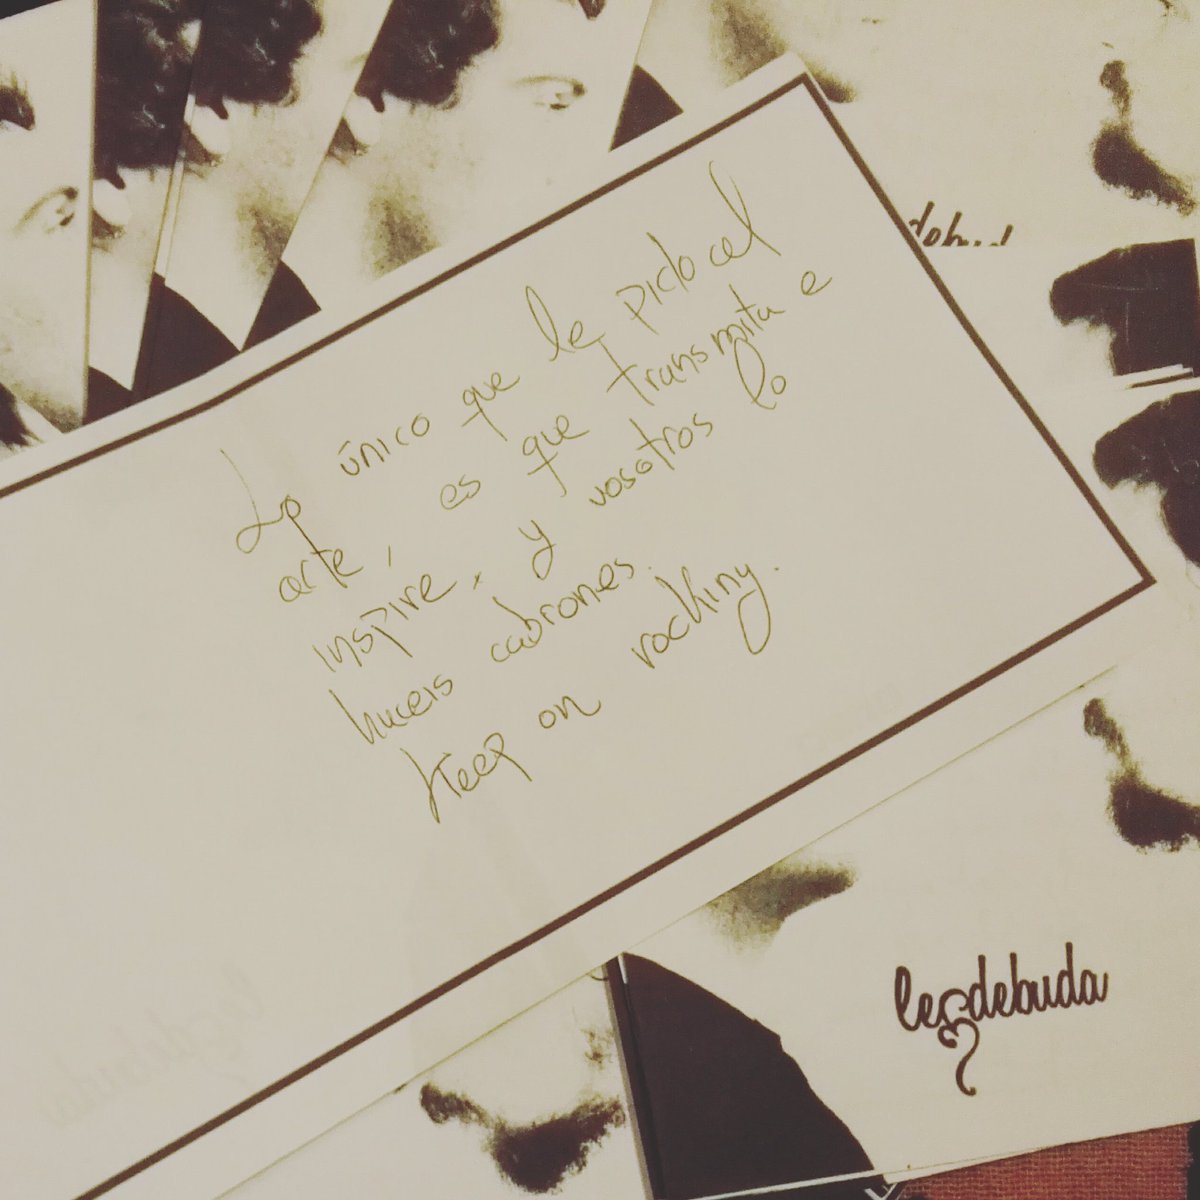 Lo único que le pido al
arte, es que transmita e
inspire, y vosotros lo
haceis cabrones.
Keep on rocking.
debud
leodebuda